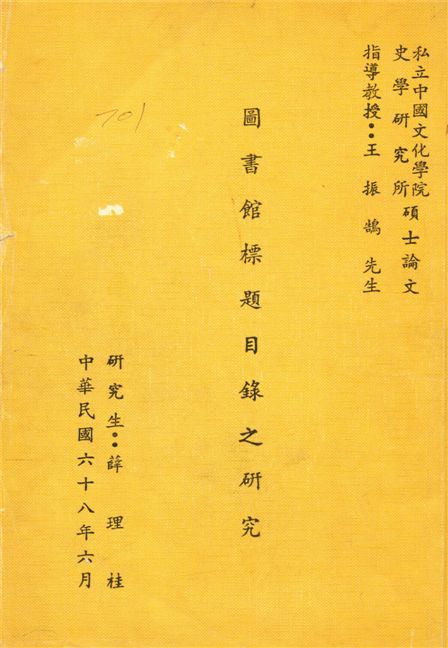 私立中國文化學院
史學研究所碩士論文
指導教授：王振鵠先生
圖書館標題目錄之研究
研究生：薛理桂
中華民國六十八年六月
701